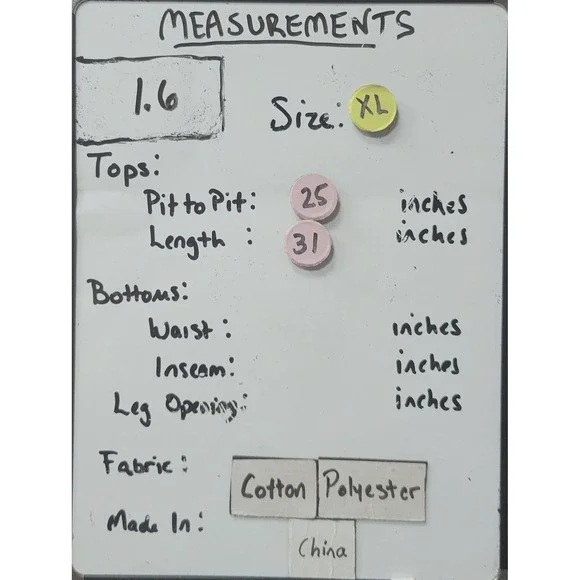 MEASUREMENTS
1.6
Size: XL
Tops:
Pit to Pit: 25 inches
Length : 31 inches
Bottoms:
Waist : inches
Inseam: inches
Leg Opening: inches
Fabric : Cotton Polyester
Made In : China